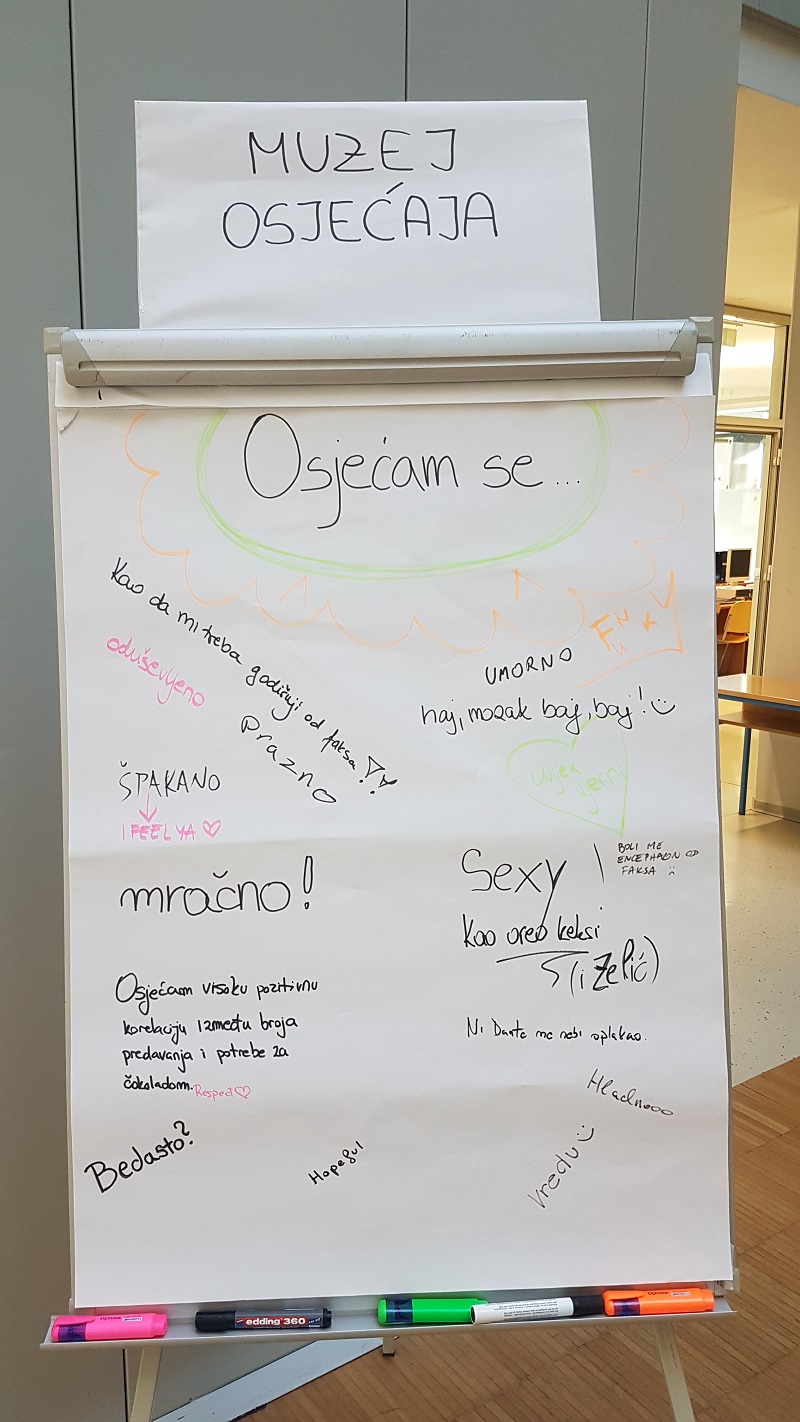 MUZEJ
OSJEĆAJA
Osjećam se...
Kao da mi treba godišnji od faksa!!
oduševljeno
Prazno
UMORNO
haj, mozak baj, baj!
ŠPAKANO
I FEEL YA
Uvijek vjerni
mračno!
Sexy
BOLI ME
ENCEPHALON OD
FAKSA
Kao oreo keksi
(i Zelić)
Osjećam visoku pozitivnu
korelaciju između broja
predavanja i potrebe za
čokoladom. Respect
Ni Dante me nebi oplakao.
Hladnooo
Bedasto?
Hopeful
Vredu
edding 360